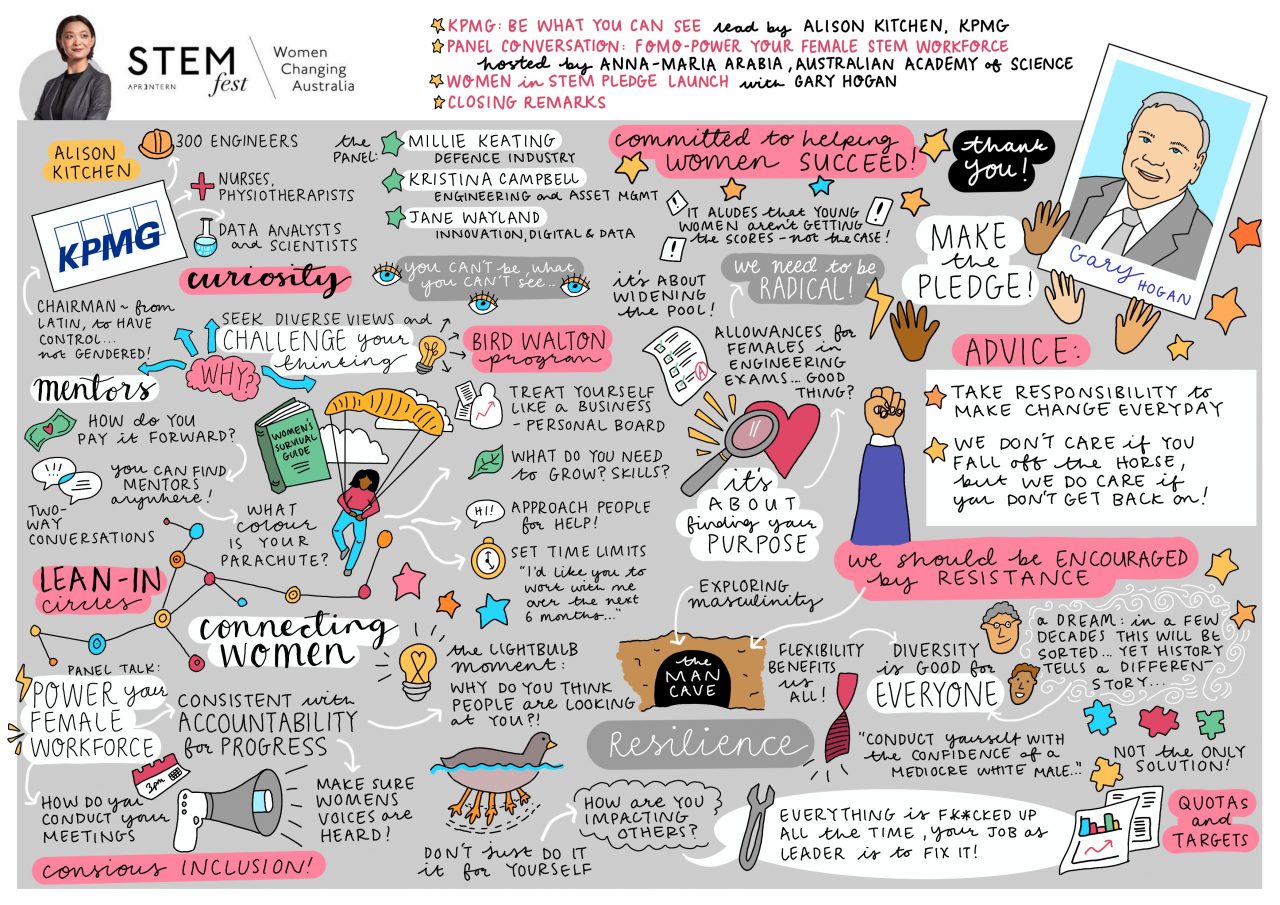 STEM
APR3NTERN
fest
Women
Changing
Australia
KPMG: BE WHAT YOU CAN SEE read by ALISON KITCHEN, KPMG
PANEL CONVERSATION: FOMO-POWER YOUR FEMALE STEM WORKFORCE
hosted by ANNA-MARIA ARABIA, AUSTRALIAN ACADEMY of SCIENCE
WOMEN in STEM PLEDGE LAUNCH with GARY HOGAN
CLOSING REMARKS
ALISON
KITCHEN
300 ENGINEERS
NURSES,
PHYSIOTHERAPISTS
DATA ANALYSTS
and SCIENTISTS
KPMG
CHAIRMAN ~ from
LATIN, to HAVE
CONTROL...
not GENDERED!
curiosity
SEEK DIVERSE VIEWS and
CHALLENGE your
thinking
WHY?
the
PANEL:
MILLIE KEATING
DEFENCE INDUSTRY
KRISTINA CAMPBELL
ENGINEERING and ASSET MGMT
JANE WAYLAND
INNOVATION, DIGITAL & DATA
you CAN'T be, what
you CAN'T see...
committed to helping
WOMEN SUCCEED!
IT ALUDES that YOUNG
WOMEN aren't GETTING
the SCORES - not the CASE!
it's ABOUT
WIDENING
the POOL!
we need to be
RADICAL!
ALLOWANCES for
FEMALES in
ENGINEERING
EXAMS... GOOD
THING?
A
thank
you!
MAKE
the
PLEDGE!
Gary
HOGAN
ADVICE:
TAKE RESPONSIBILITY to
MAKE CHANGE EVERYDAY
WE DON'T CARE if YOU
FALL off the HORSE,
but WE DO CARE if
you DON'T GET BACK on!
mentors
HOW do YOU
PAY it FORWARD?
you CAN FIND
MENTORS
anywhere!
TWO-
WAY
CONVERSATIONS
WOMEN'S
SURVIVAL
GUIDE
WHAT
colour
IS YOUR
PARACHUTE?
BIRD WALTON
program
TREAT YOURSELF
LIKE a BUSINESS
- PERSONAL BOARD
WHAT DO YOU NEED
to GROW? SKILLS?
HI!
APPROACH PEOPLE
for HELP!
SET TIME LIMITS
"I'd LIKE you to
work with me
over the next
6 months..."
it's
ABOUT
finding your
PURPOSE
we should be ENCOURAGED
by RESISTANCE
LEAN-IN
circles
connecting
WOMEN
the LIGHTBULB
moment:
WHY DO YOU THINK
PEOPLE are LOOKING
at YOU?!
EXPLORING
masculinity
the
MAN
CAVE
FLEXIBILITY
BENEFITS
us
ALL!
DIVERSITY
is GOOD for
EVERYONE
a DREAM: in a FEW
DECADES THIS WILL BE
SORTED... YET HISTORY
TELLS a DIFFERENT
STORY...
PANEL TALK:
POWER your
FEMALE
WORKFORCE
CONSISTENT with
ACCOUNTABILITY
for PROGRESS
HOW DO you
CONDUCT your
MEETINGS
3pm
MAKE SURE
WOMENS
VOICES are
HEARD!
consious INCLUSION!
Resilience
DON'T just DO IT
it for YOURSELF
HOW are YOU
IMPACTING
OTHERS?
"CONDUCT yourself WITH
the CONFIDENCE of a
MEDIOCRE WHITE MALE..."
NOT the ONLY
SOLUTION!
EVERYTHING is F**CKED UP
ALL the TIME, your JOB as
LEADER is to FIX IT!
QUOTAs
and
TARGETS